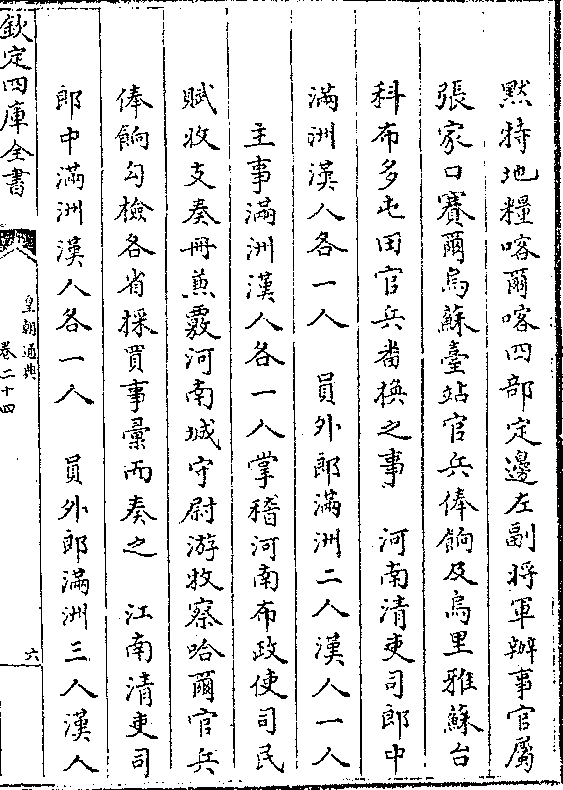 默特地糧喀爾喀四部定邊左副將軍辦事官屬
張家口賽爾烏蘇臺站官兵俸餉及烏里雅蘇台
科布多屯田官兵畨換之事　河南清吏司郎中
滿洲漢人各一人　員外郎滿洲二人漢人一人
主事滿洲漢人各一人掌稽河南布政使司民
賦收支奏冊兼覈河南城守尉游牧察哈爾官兵
俸餉勾檢各省採買事彚而奏之　江南清吏司
郎中滿洲漢人各一人　員外郎滿洲三人漢人
欽定四庫全書
皇朝通典
卷二十四
六